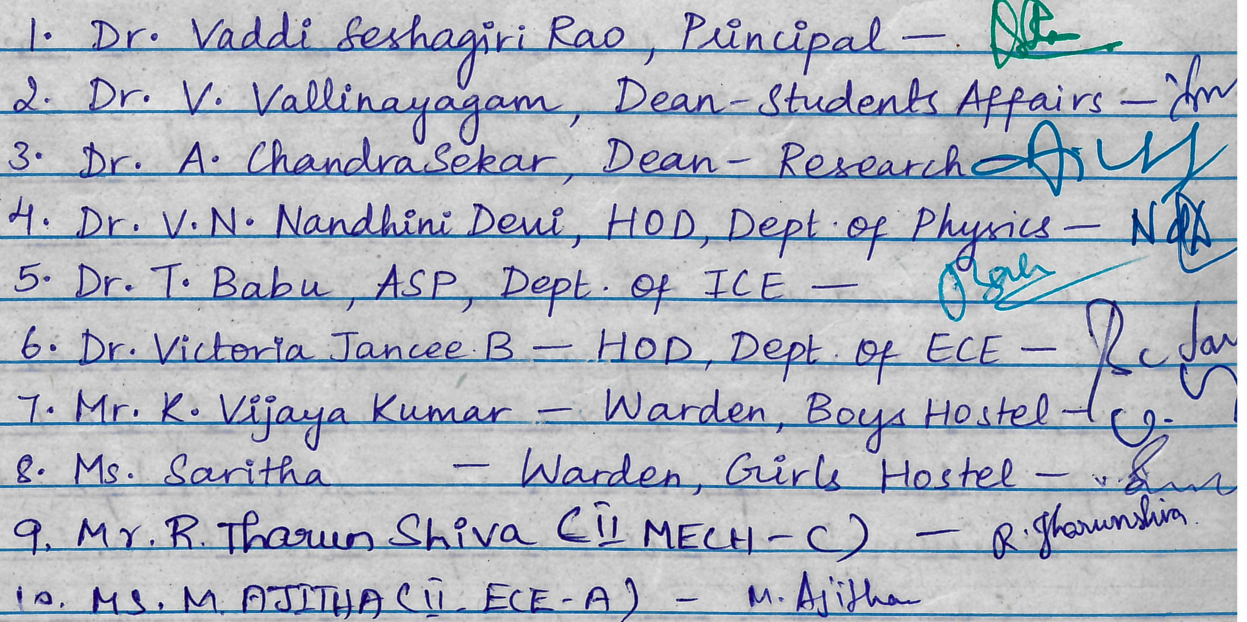 1. Dr. Vaddi Seshagiri Rao, Principal –
2. Dr. V. Vallinayagam, Dean-Students Affairs –
3. Dr. A. ChandraSekar, Dean- Research
4. Dr. V.N. Nandhini Devi, HOD, Dept. of Physics –
5. Dr. T. Babu, ASP, Dept. of ICE –
6. Dr. Victoria Jancee.B – HOD, Dept. of ECE –
7. Mr. K. Vijaya Kumar – Warden, Boys Hostel –
8. Ms. Saritha – Warden, Girls Hostel –
9. Mr. R. Tharun Shiva (II MECH-C) – R. Tharunshiva
10. MS. M. AJITHA (II- ECE-A) – M. Ajitha